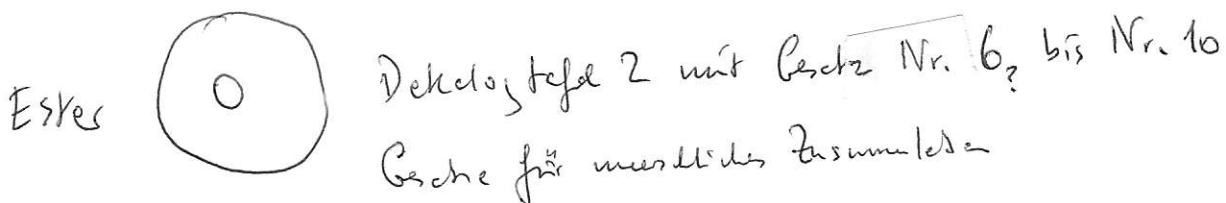 Ester
Dekalogtafel 2 mit Gesetz Nr. 6? bis Nr. 10
Gesetze für menschliches Zusammenleben